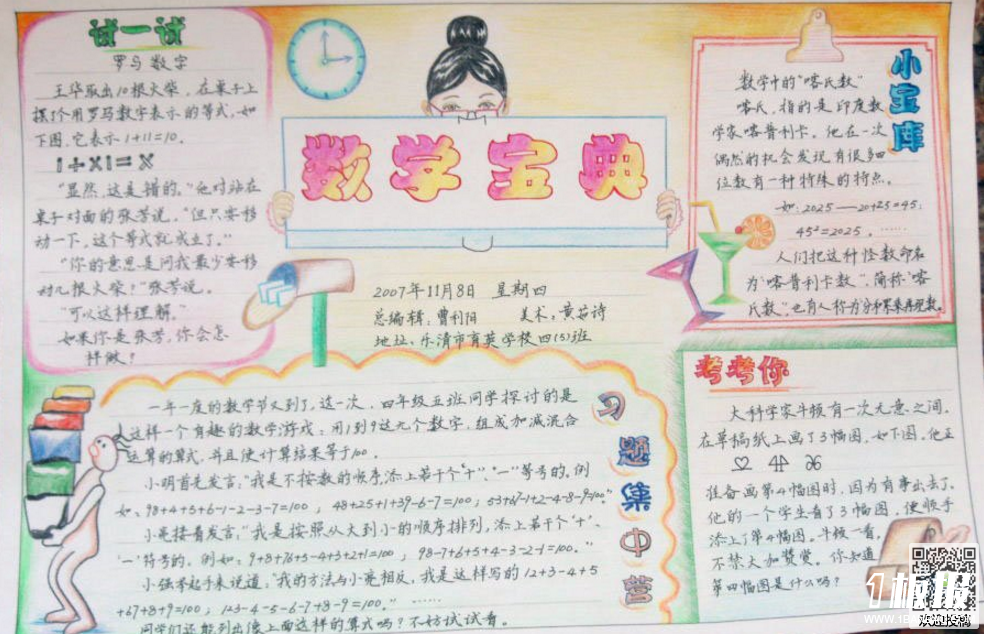 试一试
罗马数字
王华取出10根火柴，在桌子上
摆1个用罗马数字表示的等式，如
下图，它表示1+11=10。
I+XI=X
"显然，这是错的，"他对站在
桌子对面的张芳说，"但只要移
动一下，这个等式就成立了。"
"你的意思是问我最少要移
动几根火柴？"张芳说。
"可以这样理解。"
如果你是张芳，你会怎
样做？
数学宝典
2007年11月8日 星期四
总编辑：曹利阳 美术：黄茹诗
地址：乐清市育英学校四(5)班
小宝库
数学中的"喀氏数"
喀氏，指的是印度数
学家喀普利卡。他在一次
偶然的机会发现有很多四
位数有一种特殊的特点。
如：2025——20+25=45；
45²=2025，……
人们把这种怪数命名
为"喀普利卡数"，简称"喀
氏数"。也有人称为分和累乘再现数。
习题集中营
一年一度的数学节又到了，这一次，四年级五班同学探讨的是
这样一个有趣的数学游戏：用1到9这九个数字，组成加减混合
运算的算式，并且使计算结果等于100。
小明首先发言："我是不按数的顺序，添上若干个"+"、"-"等号的，例
如：98+4+5+6-1-2-3-7=100；48+25+1+39-6-7=100；53+67-1+2-4-8-9=100"
小亮接着发言："我是按照从大到小的顺序排列，添上若干个"+"、
"-"符号的，例如：9+8+76+5-4+3+2+1=100；98-7+6+5+4-3-2-1=100。"
小强举起手来说道："我的方法与小亮相反，我是这样写的12+3-4+5
+67+8+9=100；123-4-5-6-7+8-9=100。" ……
同学们还能列出像上面这样的算式吗？不妨试试看。
考考你
大科学家牛顿有一次无意之间，
在草稿纸上画了3幅图，如下图。他正
准备画第4幅图时，因为有事出去了。
他的一个学生看了3幅图，便顺手
添上了第4幅图。牛顿一看，
不禁大加赞赏。你知道
第四幅图是什么吗？
欢迎投稿